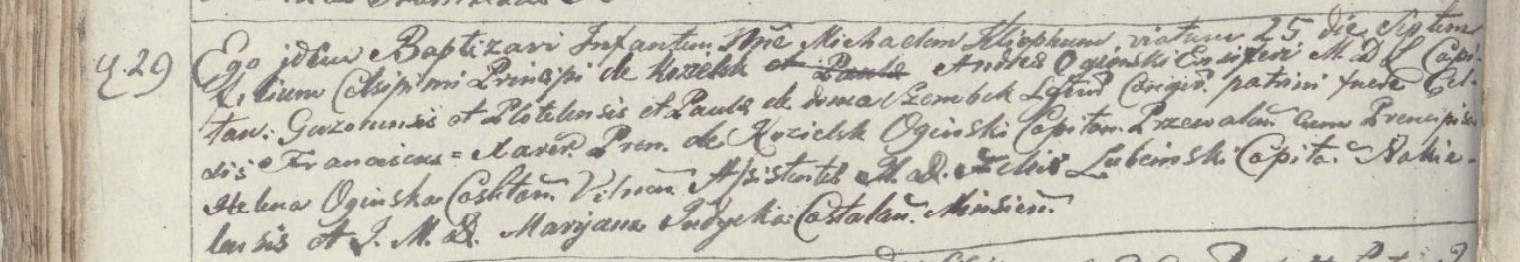 q. 29
Ego idem Baptizavi Infantem Nñe Michaelem Kleophum natum 25 die Septem
filium Celsissimi Principi de Kozelsk et Paula Andrea Oginski Ensiferi M. D. L Capi-
tan: Guzovensis et Plotelensis et Paula de domo Szembek Legit Coniug. patrini fuere Cel-
sis Franciscus = Xaver. Prin. de Kozielsk Oginski Capitan. Przewalen cum Principissa
Helena Oginska Casteltan. Vilnen Assistentes M. D. Lubeinski Capita. Nakie-
lensis et J. M. D. Maryana Judycka Castalan. Minsien.